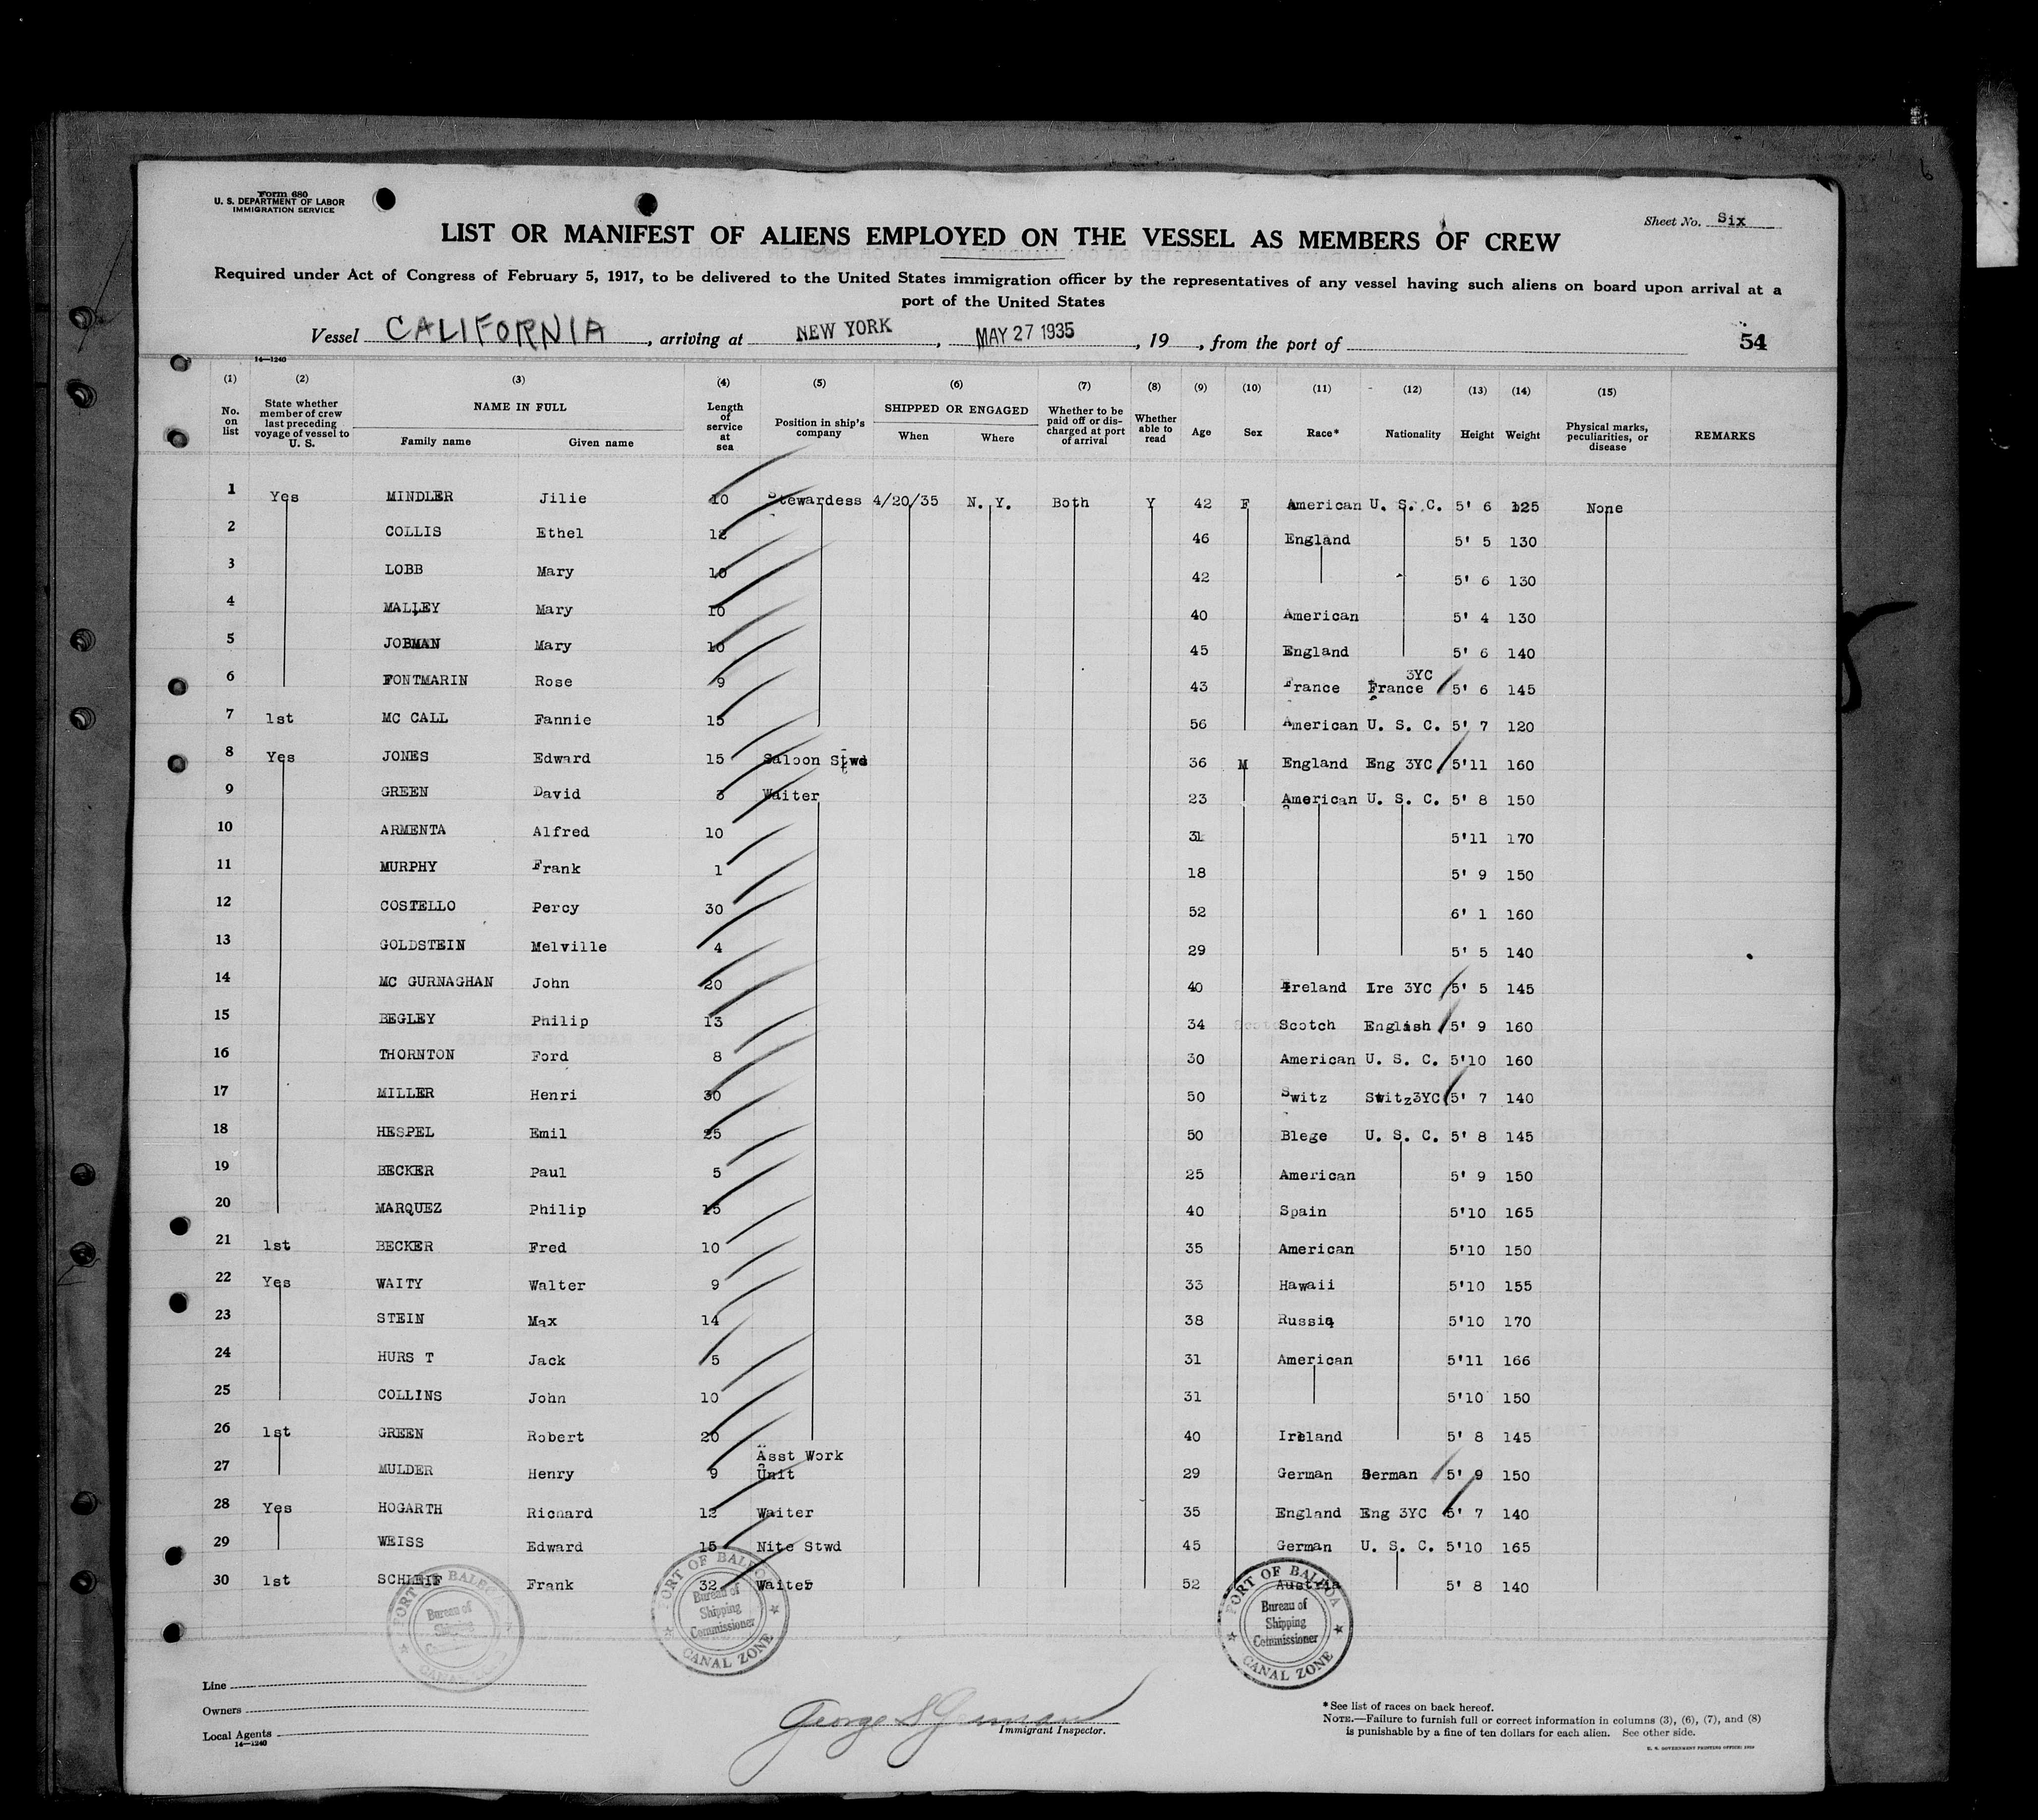 Form 680
U. S. DEPARTMENT OF LABOR
IMMIGRATION SERVICE
Sheet No. Six
LIST OR MANIFEST OF ALIENS EMPLOYED ON THE VESSEL AS MEMBERS OF CREW
Required under Act of Congress of February 5, 1917, to be delivered to the United States immigration officer by the representatives of any vessel having such aliens on board upon arrival at a
port of the United States
Vessel CALIFORNIA, arriving at NEW YORK, MAY 27 1935, 19 , from the port of
54
14—1240
(1) (2) (3) (4) (5) (6) (7) (8) (9) (10) (11) (12) (13) (14) (15)
No. on list
State whether member of crew last preceding voyage of vessel to U. S.
NAME IN FULL
Family name Given name
Length of service at sea
Position in ship's company
SHIPPED OR ENGAGED
When Where
Whether to be paid off or discharged at port of arrival
Whether able to read
Age
Sex
Race*
Nationality
Height
Weight
Physical marks, peculiarities, or disease
REMARKS
1 Yes MINDLER Jilie 10 Stewardess 4/20/35 N. Y. Both Y 42 F American U. S. C. 5' 6 125 None
2 COLLIS Ethel 12 46 England 5' 5 130
3 LOBB Mary 10 42 5' 6 130
4 MALLEY Mary 10 40 American 5' 4 130
5 JOBMAN Mary 10 45 England 5' 6 140
6 FONTMARIN Rose 9 43 France France 3YC 5' 6 145
7 1st MC CALL Fannie 15 56 American U. S. C. 5' 7 120
8 Yes JONES Edward 15 Saloon Stwd 36 M England Eng 3YC 5'11 160
9 GREEN David 3 Waiter 23 American U. S. C. 5' 8 150
10 ARMENTA Alfred 10 31 5'11 170
11 MURPHY Frank 1 18 5' 9 150
12 COSTELLO Percy 30 52 6' 1 160
13 GOLDSTEIN Melville 4 29 5' 5 140
14 MC GURNAGHAN John 20 40 Ireland Ire 3YC 5' 5 145
15 BEGLEY Philip 13 34 Scotch English 5' 9 160
16 THORNTON Ford 8 30 American U. S. C. 5'10 160
17 MILLER Henri 30 50 Switz Switz3YC 5' 7 140
18 HESPEL Emil 25 50 Blege U. S. C. 5' 8 145
19 BECKER Paul 5 25 American 5' 9 150
20 MARQUEZ Philip 15 40 Spain 5'10 165
21 1st BECKER Fred 10 35 American 5'10 150
22 Yes WAITY Walter 9 33 Hawaii 5'10 155
23 STEIN Max 14 38 Russia 5'10 170
24 HURS T Jack 5 31 American 5'11 166
25 COLLINS John 10 31 5'10 150
26 1st GREEN Robert 20 40 Ireland 5' 8 145
27 MULDER Henry 9 Asst Work Unit 29 German German 5' 9 150
28 Yes HOGARTH Richard 12 Waiter 35 England Eng 3YC 5' 7 140
29 WEISS Edward 15 Nite Stwd 45 German U. S. C. 5'10 165
30 1st SCHLEIF Frank 32 Waiter 52 Austria 5' 8 140
PORT OF BALBOA Bureau of Shipping Commissioner CANAL ZONE
PORT OF BALBOA Bureau of Shipping Commissioner CANAL ZONE
PORT OF BALBOA Bureau of Shipping Commissioner CANAL ZONE
Line
Owners
Local Agents
14—1240
George
Immigrant Inspector.
*See list of races on back hereof.
NOTE.—Failure to furnish full or correct information in columns (3), (6), (7), and (8)
is punishable by a fine of ten dollars for each alien. See other side.